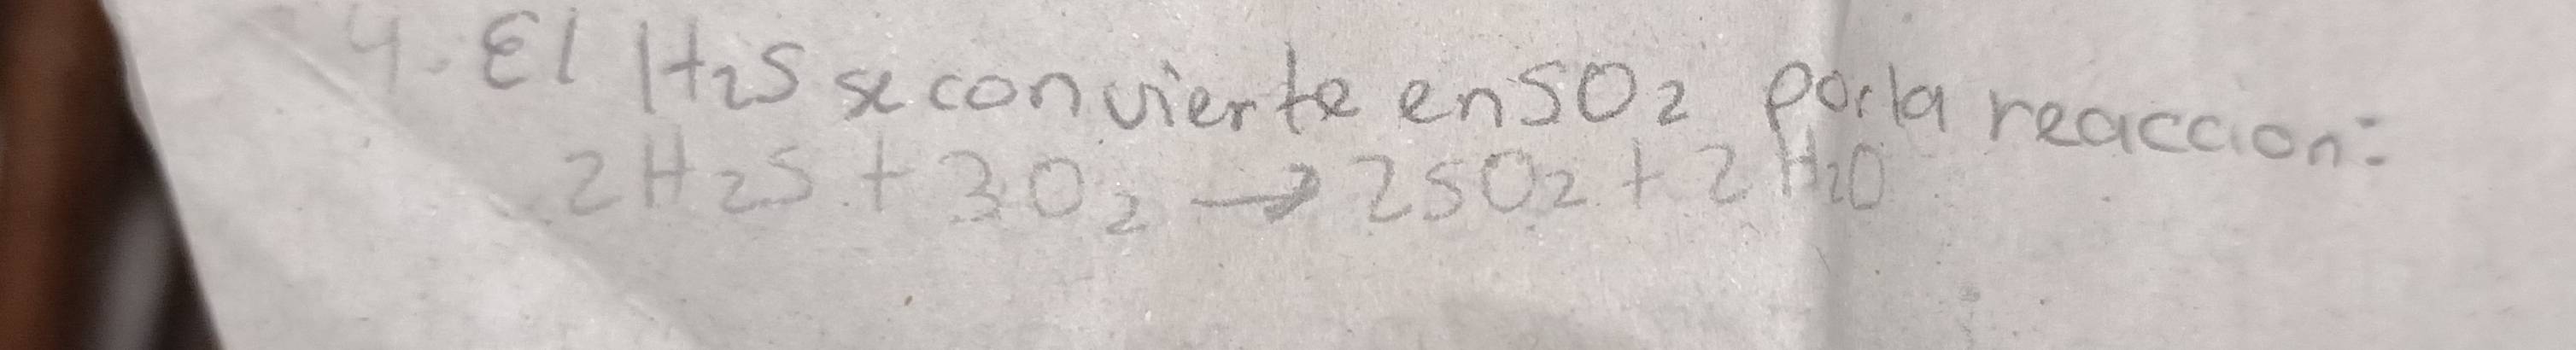 4. El H₂S se convierte en SO₂ por la reaccion:
2H₂S + 3O₂ → 2SO₂ + 2H₂O